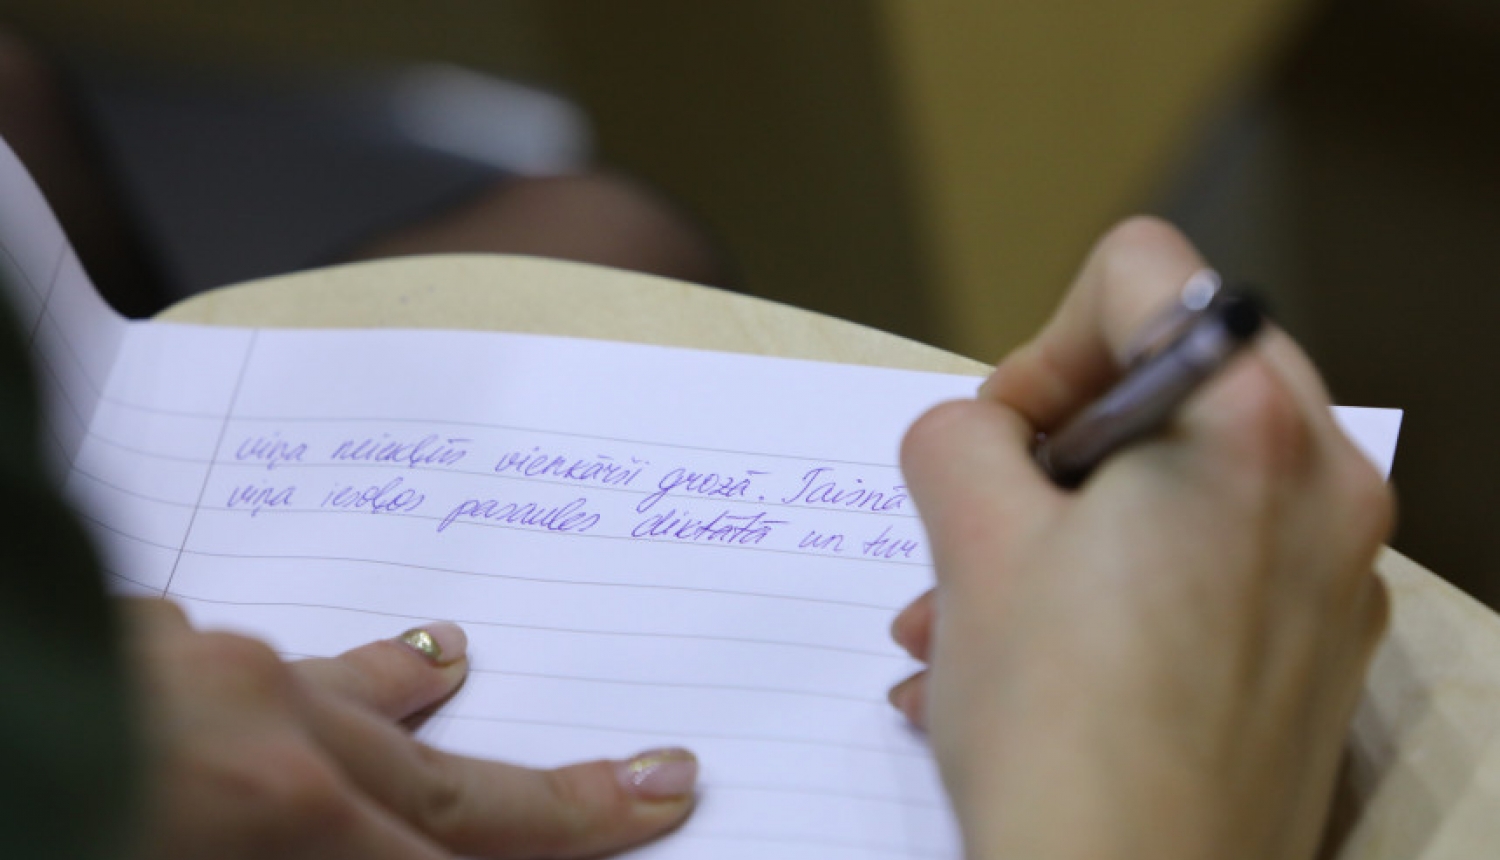 viņa neiekļūs vienkārši grozā. Taisnā
viņa iesoļos pasaules diktātā un tur